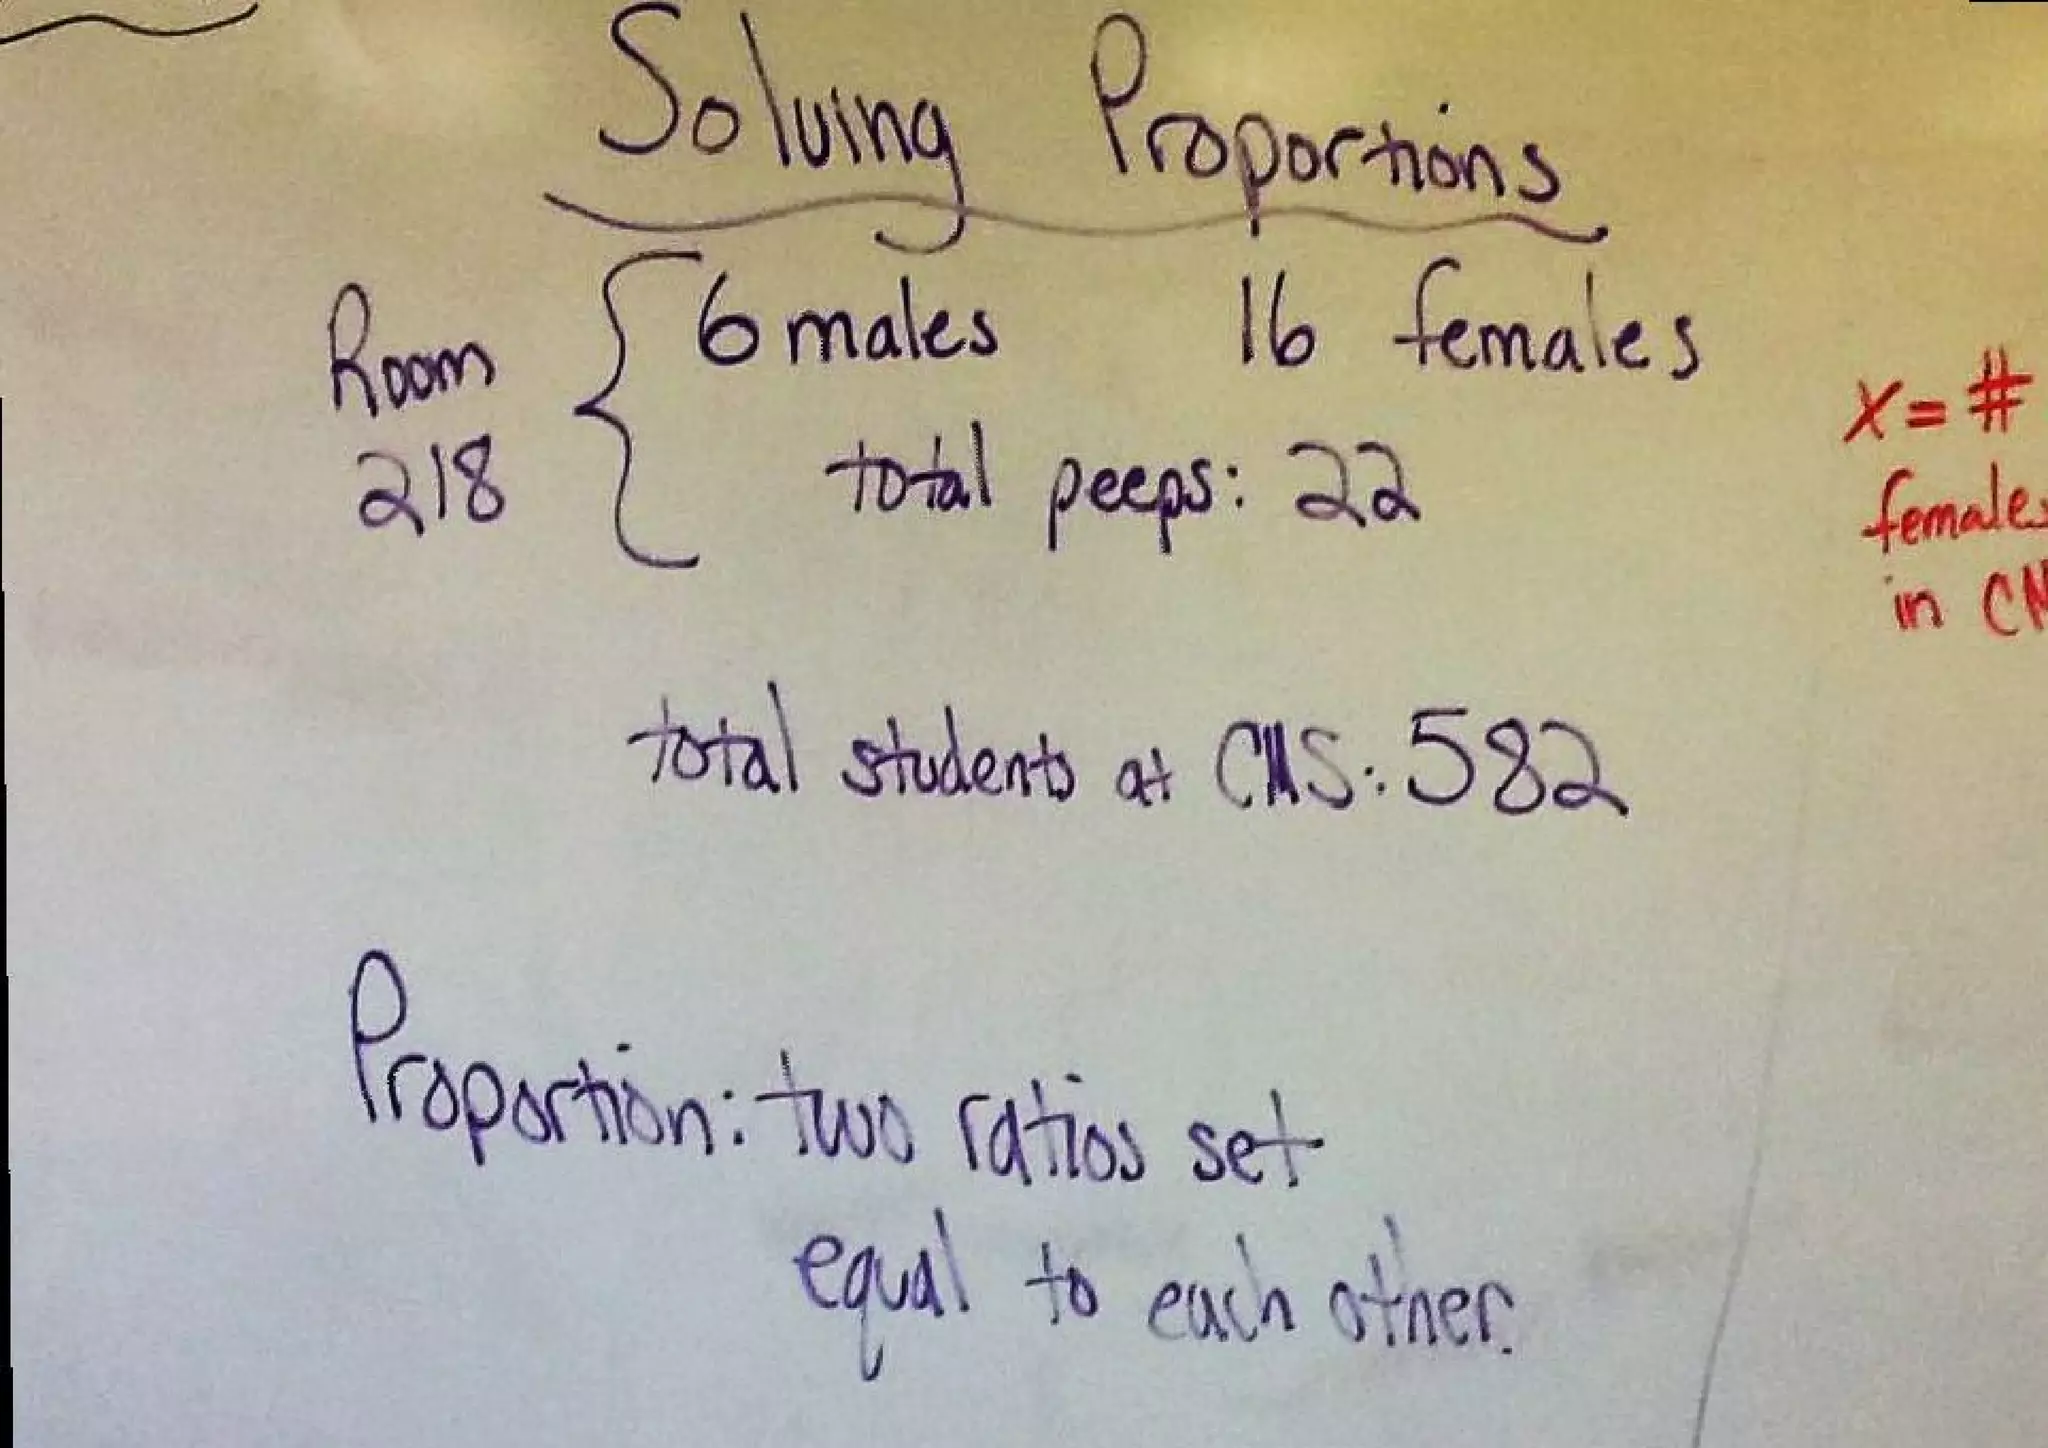 Solving Proportions
Room
218
6 males 16 females
total peeps: 22
x = #
females
in CM
total students at CMS: 582
Proportion: two ratios set
equal to each other.